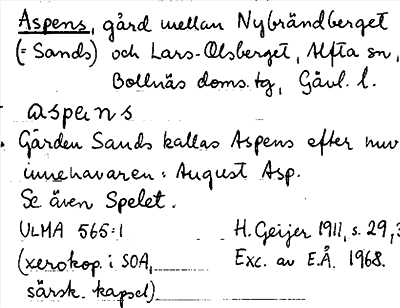 Aspens, gård mellan Nybrändberget
(= Sands) och Lars-Olsberget, Alfta sn,
Bollnäs doms.tg, Gävl. l.
aspens
Gården Sands kallas Aspens efter nuv
innehavaren: August Asp.
Se även Spelet.
ULMA 565:1 H. Geijer 1911, s. 29,3
(xerokop. i SOA, Exc. av E.Å. 1968.
särsk. kapsel)